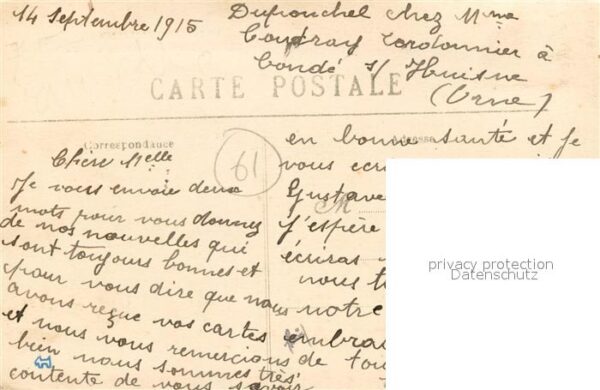 14 Septembre 1915
Dufronchel chez Mme
Coudray Cordonnier à
Condé s/ Huisne
(Orne)
CARTE POSTALE
Correspondance
Adresse
61
Chère Melle
Je vous envoie deux
mots pour vous donnez
de nos nouvelles qui
sont toujours bonnes et
pour vous dire que nous
avons reçue vos cartes
et nous vous remercions
bien nous sommes très
contente de vous savoir
en bonne santé et je
vous
Gustave
M
j'espère
écriras
nous
notre
de
privacy protection
Datenschutz